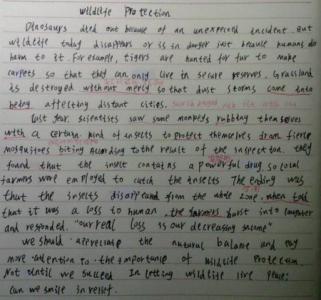 wildlife Protection
Dinosaurs died out because of an unexpected incident. But
wildlife today disappears or is in danger just because humans do
harm to it. For example, tigers are hunted for fur to make
carpets so that they can only live in secure reserves. Grassland
is destroyed without mercy so that dust storms come into
being affecting distant cities.
Last year, scientists saw some monkeys rubbing themselves
with a certain kind of insects to protect themselves from fierce
mosquitoes biting. According to the result of the inspection, they
found that the insect contains a powerful drug so local
farmers were employed to catch the insects. The ending was
that the insects disappeared from the whole zone. when told
that it was a loss to human, the farmers burst into laughter
and responded, "our real loss is our decreasing income"
we should appreciate the natural balance and pay
more attention to the importance of wildlife protection.
Not until we succeed in letting wildlife live peace
can we smile in relief.